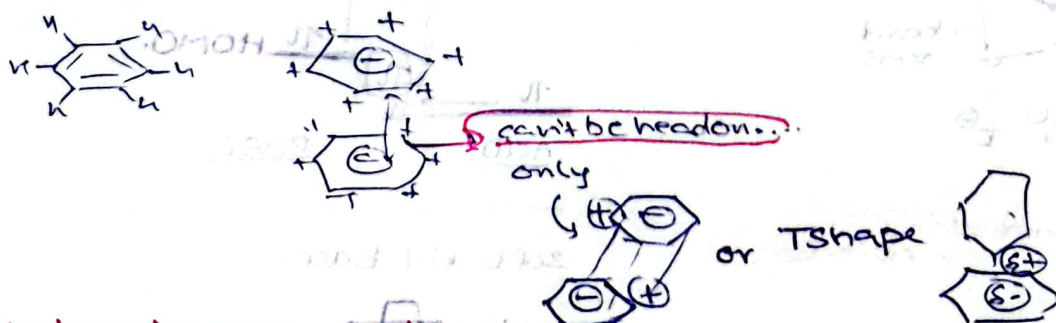 H H H H H H
+ + + + + + −
+ + + + + −
can't be head on....
only
+ − − +
or T shape
δ+
δ-